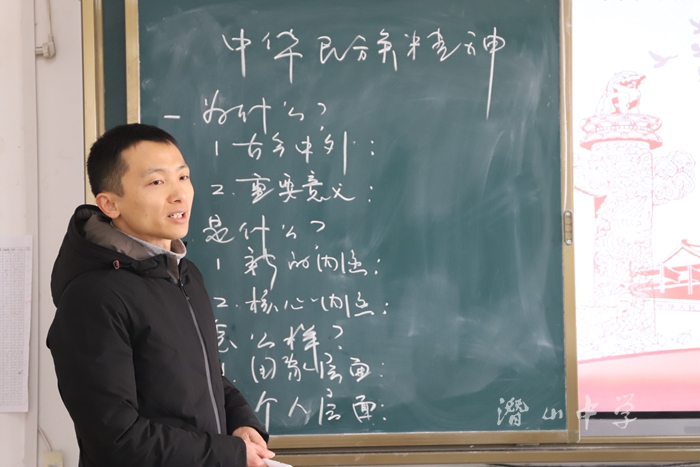 中华民族精神
一 为什么?
1 古今中外:
2. 重要意义:
是什么?
1 新的内涵:
2. 核心内涵:
怎么样?
1 国家层面:
个人层面:
潜山中学